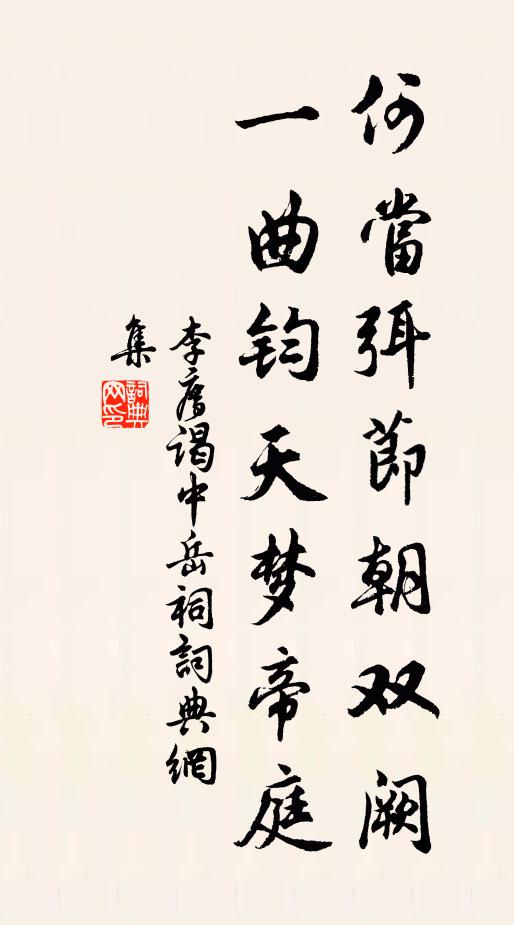 何當弭節朝双阙
一曲钧天梦帝庭
李廌谒中岳祠詞典網
集
詞典
网印